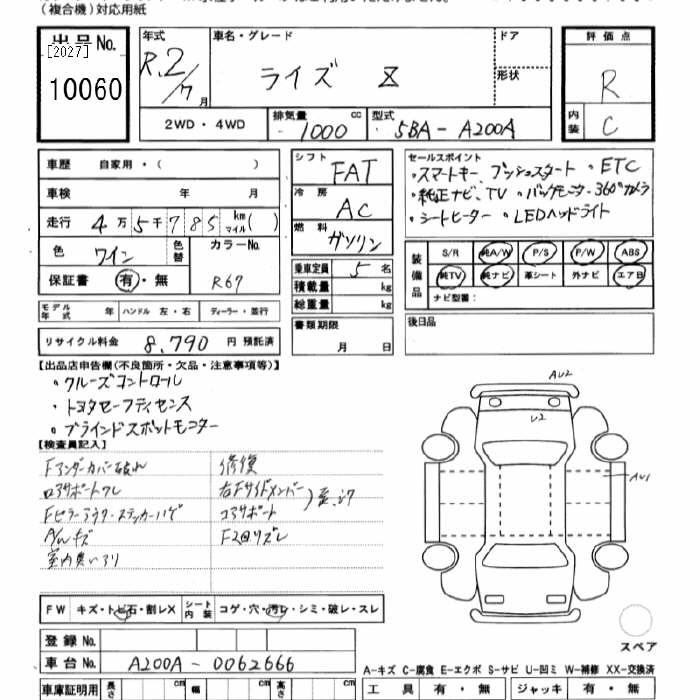 （複合機）対応用紙
出品No.
[2027]
10060
年式
R.2/7月
車名・グレード
ライズ Z
ドア
形状
評価点
R
内装
C
2WD・4WD
排気量 1000 cc
型式 5BA-A200A
車歴 自家用・（ ）
車検 年 月
走行 4万5千785 km マイル( )
色 ワイン
色替
カラーNo.
R67
保証書 有・無
シフト
FAT
冷房
AC
燃料
ガソリン
乗車定員 5 名
積載量 kg
総重量 kg
書類期限
月 日
セールスポイント
・スマートキー、プッシュスタート ・ETC
・純正ナビ、TV ・バックモニター・360°カメラ
・シートヒーター ・LEDヘッドライト
装備品
S/R 純A/W P/S P/W ABS
純TV 純ナビ 革シート 外ナビ エアB
ナビ型番：
後日品
モデル年式 年 ハンドル 左・右 ディーラー・並行
リサイクル料金 8,790 円 預託済
【出品店申告欄(不良箇所・欠品・注意事項等)】
・クルーズコントロール
・トヨタセーフティセンス
・ブラインドスポットモニター
【検査員記入】
Fアンダーカバー破れ
ロアサポートズレ
Fピラーアウターステッカーハゲ
A/Wキズ
室内臭い有り
修復
右Fサイドメンバー
コアサポート
AU2
U2
AU1
FW キズ・トビ石・割レX シート内装 コゲ・穴・汚レ・シミ・破レ・スレ
スペア
登録No.
車台No. A200A-0062666
A-キズ C-腐食 E-エクボ S-サビ U-凹ミ W-補修 XX-交換済
車庫証明用 長さ cm 幅 cm 高さ cm
工具 有・無 ジャッキ 有・無